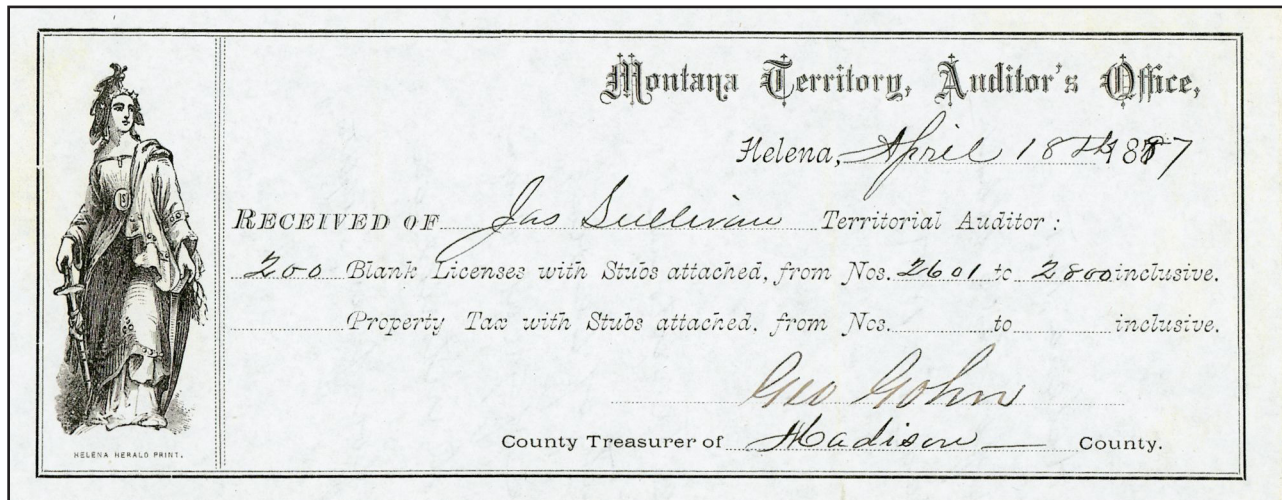 Montana Territory, Auditor's Office,
Helena, April 18th 1887
RECEIVED OF Jas Sullivan Territorial Auditor:
200 Blank Licenses with Stubs attached, from Nos. 2601 to 2800 inclusive.
Property Tax with Stubs attached, from Nos. to inclusive.
Geo Gohn
County Treasurer of Madison County.
HELENA HERALD PRINT.